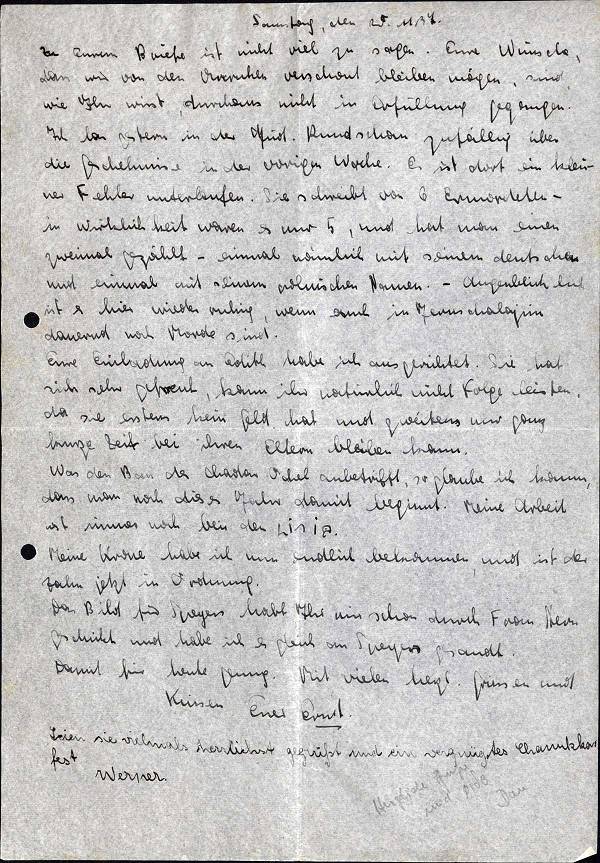 Samstag, den 20. 11. 37.
Zu Eurem Briefe ist nicht viel zu sagen. Eure Wünsche,
dass wir von den Unruhen verschont bleiben mögen, sind,
wie Ihr wisst, durchaus nicht in Erfüllung gegangen.
Ich las gestern in der Jüd. Rundschau zufällig über
die Geschehnisse in der vorigen Woche. Es ist dort ein klei-
ner Fehler unterlaufen. Sie schreibt von 6 Ermordeten -
in Wirklichkeit waren es nur 5, und hat man einen
zweimal gezählt - einmal nämlich mit seinem deutschen
und einmal mit seinem polnischen Namen. - Augenblicklich
ist es hier wieder ruhig, wenn auch in Jeruschalajim
dauernd noch Morde sind.
Eure Einladung an Edith habe ich ausgerichtet. Sie hat
sich sehr gefreut, kann ihr natürlich nicht Folge leisten,
da sie erstens kein Geld hat und zweitens nur ganz
kurze Zeit bei ihren Eltern bleiben kann.
Was den Bau des Chadar Ochel anbetrifft, so glaube ich kaum,
dass man noch dieses Jahr damit beginnt. Meine Arbeit
ist immer noch bei den
Meine Krone habe ich nun endlich bekommen und ist der
Zahn jetzt in Ordnung.
Das Bild für Speyers habt Ihr uns schon durch Frau Stern
geschickt und habe ich es gleich an Speyers gesandt.
Damit für heute genug. Mit vielen herzl. Grüssen und
Küssen Euer Ernst.
Seien sie vielmals herzlichst gegrüßt und ein vergnügtes Chanukka
fest
Werner.
Herzliche Grüße
und